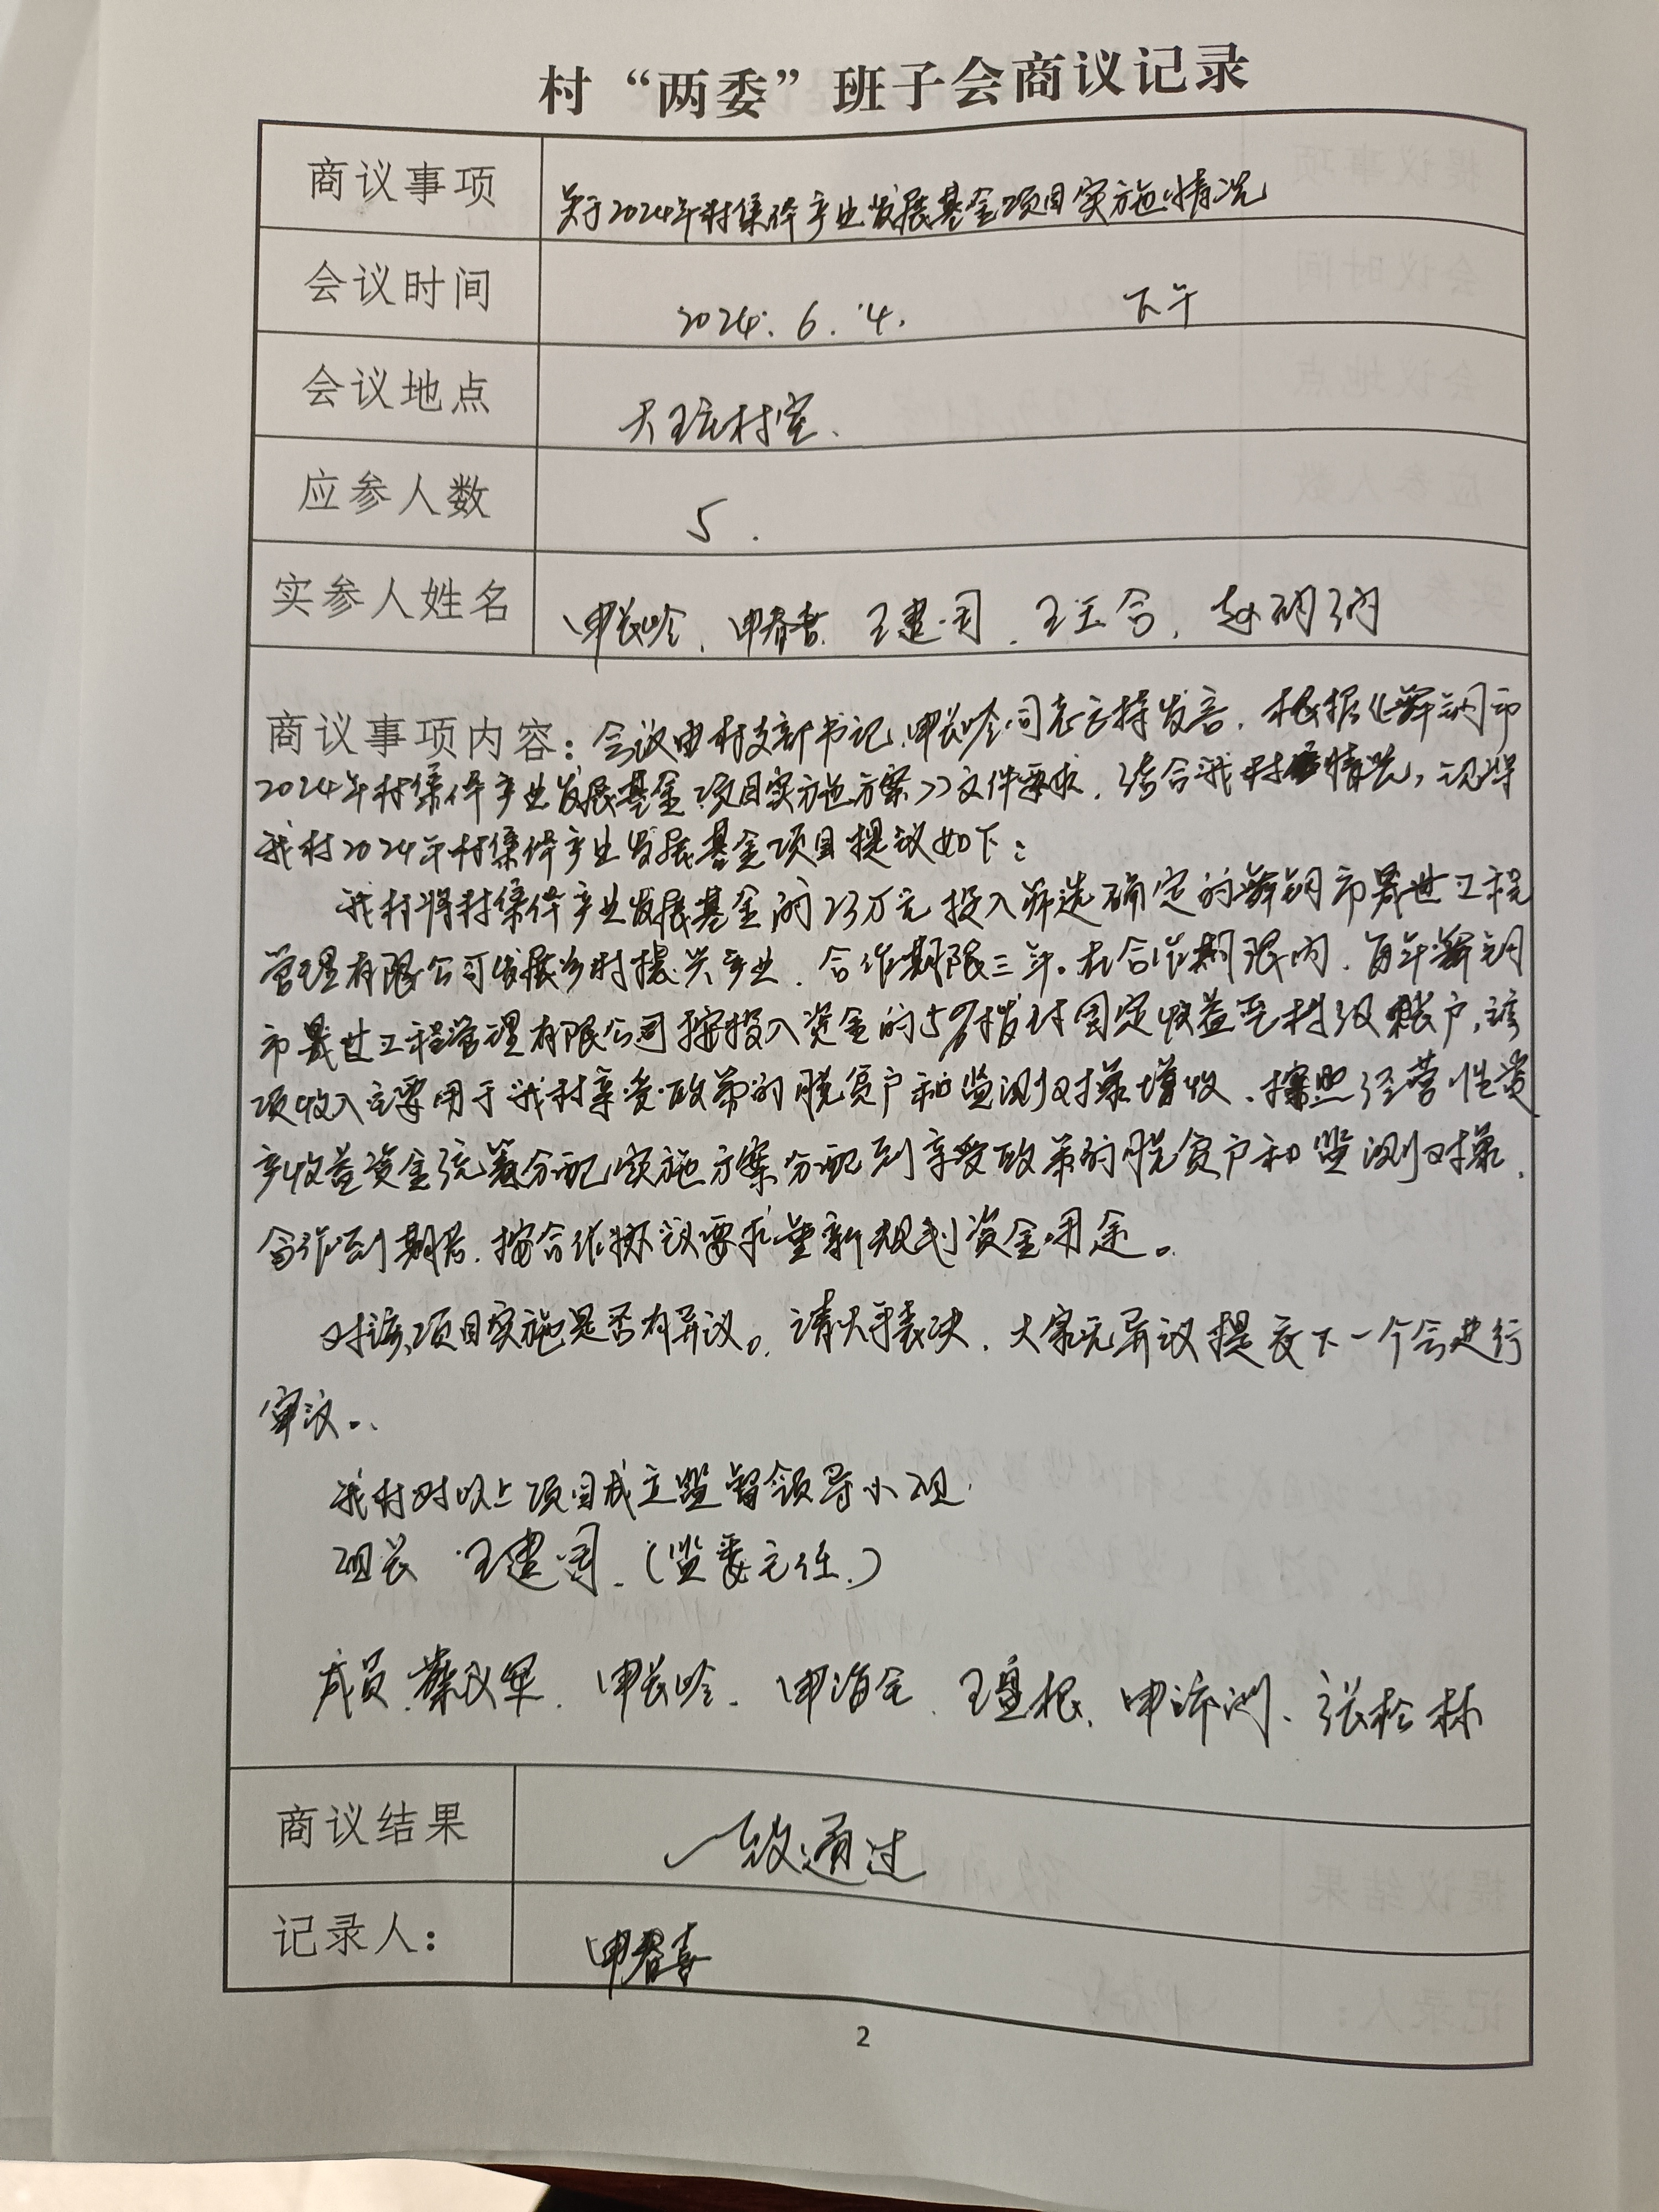 村“两委”班子会商议记录
商议事项 关于2024年村集体产业发展基金项目实施情况
会议时间 2024.6.4. 下午
会议地点 大 村室.
应参人数 5.
实参人姓名 申长岭、申春喜、王建司、王玉合、赵
商议事项内容：会议由村支部书记、申长岭同志主持发言.根据《舞钢市
2024年村集体产业发展基金项目实施方案》文件要求.结合我村 情况,现将
我村2024年村集体产业发展基金项目提议如下:
我村将村集体产业发展基金的23万元投入筛选确定的舞钢市晟世工程
管理有限公司发展乡村振兴产业.合作期限三年。在合作期限内.每年舞钢
市晟世工程管理有限公司按投入资金的5%拨付固定收益至村级账户,该
项收入主要用于我村享受政策的脱贫户和监测对象增收.按照经营性资
产收益资金统筹分配实施方案分配到享受政策的脱贫户和监测对象.
合作到期后.按合作协议要求重新规划资金用途。
对该项目实施是否有异议。请大家表决.大家无异议提交下一个会进行
审议。
我村对以上项目成立监督领导小组.
组长 王建司.(监委主任.)
成员 蔡 军.申长岭.申 .王盘根、申 洲、张松林
商议结果 一致通过
记录人： 申春喜
2